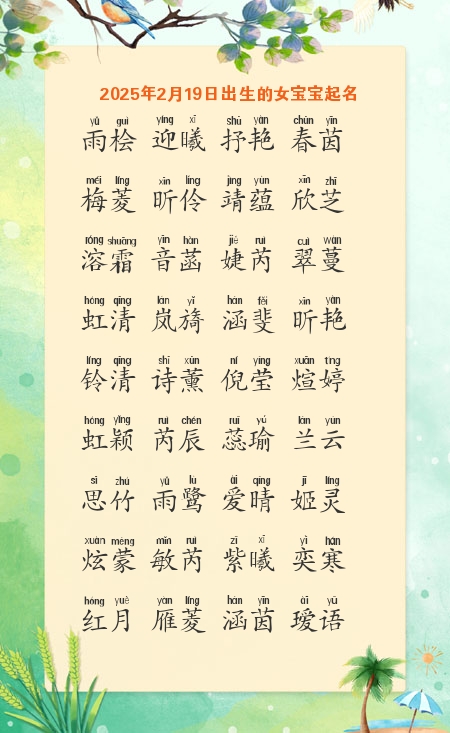 2025年2月19日出生的女宝宝起名
yǔ guì yíng xī shū yàn chūn yīn
雨桧 迎曦 抒艳 春茵
méi líng xīn líng jìng yùn xīn zhī
梅菱 昕伶 靖蕴 欣芝
róng shuāng yīn hàn jié ruì cuì wàn
溶霜 音菡 婕芮 翠蔓
hóng qīng lán yǐ hán fěi xīn yàn
虹清 岚旖 涵斐 昕艳
líng qīng shī xūn ní yíng xuān tíng
铃清 诗薰 倪莹 煊婷
hóng yǐng ruì chén ruǐ yú lán yún
虹颖 芮辰 蕊瑜 兰云
sī zhú yǔ lù ài qíng jī líng
思竹 雨鹭 爱晴 姬灵
xuàn méng mǐn ruì zǐ xī yì hán
炫蒙 敏芮 紫曦 奕寒
hóng yuè yàn líng hán yīn ài yǔ
红月 雁菱 涵茵 瑷语